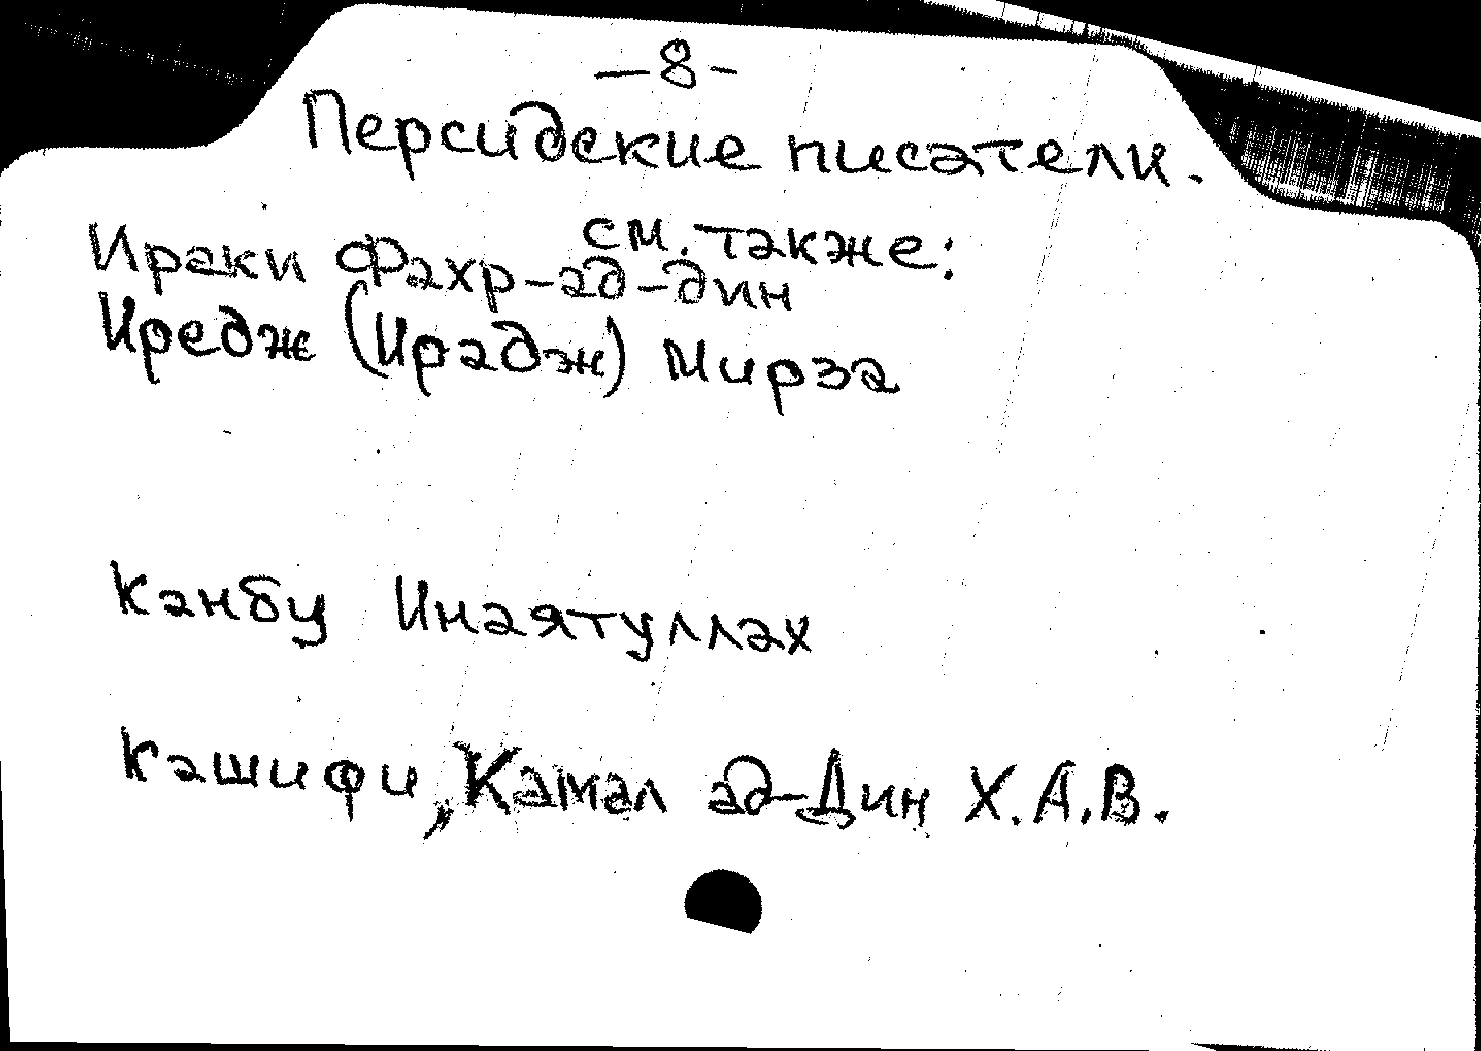 —8—
Персидские писатели.
см. также:
Ираки Фахр-ад-дин
Иредж (Ирадж) Мирза
Канбу Инаятуллах
Кашифи, Камал ад-Дин Х.А.В.